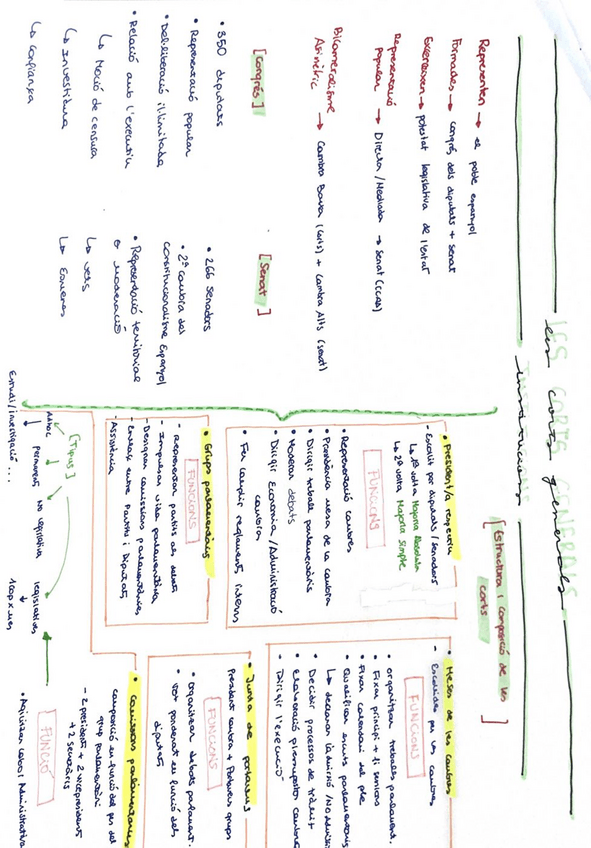 LES CORTS GENERALS
les corts generals
INSTITUCIONS
institucions
Representen → el poble espanyol
Formades → congrés dels diputats + senat
Exerceixen → potestat legislativa de l'estat
Representació
popular → Directa / Mediada → senat (CCAA)
Bicameralisme
Asimètric → Cambra Baixa (Corts) + Cambra Alta (senat)
[congrés]
• 350 diputats
• Representació popular
• Deliberació il·limitada
• Relació amb l'executiu
↳ Moció de censura
↳ Investidura
↳ Confiança
[Senat]
• 266 senadors
• 2ª cambra del
constitucionalisme Espanyol
• Representació territorial
e moderació
↳ vets
↳ Esmenes
[Estructura i composició de les
corts]
• President/a respectiu
- Escollit per diputats / senadors
↳ 1ª volta Majoria Absoluta
↳ 2ª volta Majoria Simple
FUNCIONS
• Representació cambres
• Presidència mesa de la cambra
• Dirigir treball parlamentaris
• Moderar debats
• Dirigir Economia / Administració
cambra
• Fer complir reglament intern
• Grups parlamentaris
FUNCIONS
- Representar partits al debat
- Impulsar vida parlamentària
- Designar comissions parlamentàries
- Enllaç entre Partits i Diputats
- Assistència
• Meses de les cambres
- Escollides per les cambres
FUNCIONS
• organitzar treballs parlament.
• Fixar principi + fi sessions
• Fixar calendari del ple
• Qualificar escrits parlamentaris
↳ declarar admissió / No admissió
• Decidir processos de tràmit
• Elaboració pressupostos cambra
• Dirigir l'execució
• Junta de portaveus
President cambra + Portaveus grups
FUNCIONS
• organitzar debats parlament.
• vot ponderat en funció dels
diputats
• Comissions parlamentàries
composició en funció del pes del
grup parlamentari
- 2 presidents + 2 vicepresident
+ 2 Secretaris
FUNCIÓ
• Agilitzar labor Administrativa
[Tipus]
Ad hoc
↓
Estudi / investigació ...
Permanent
No legislativa
legislatives
↓
100 x mes